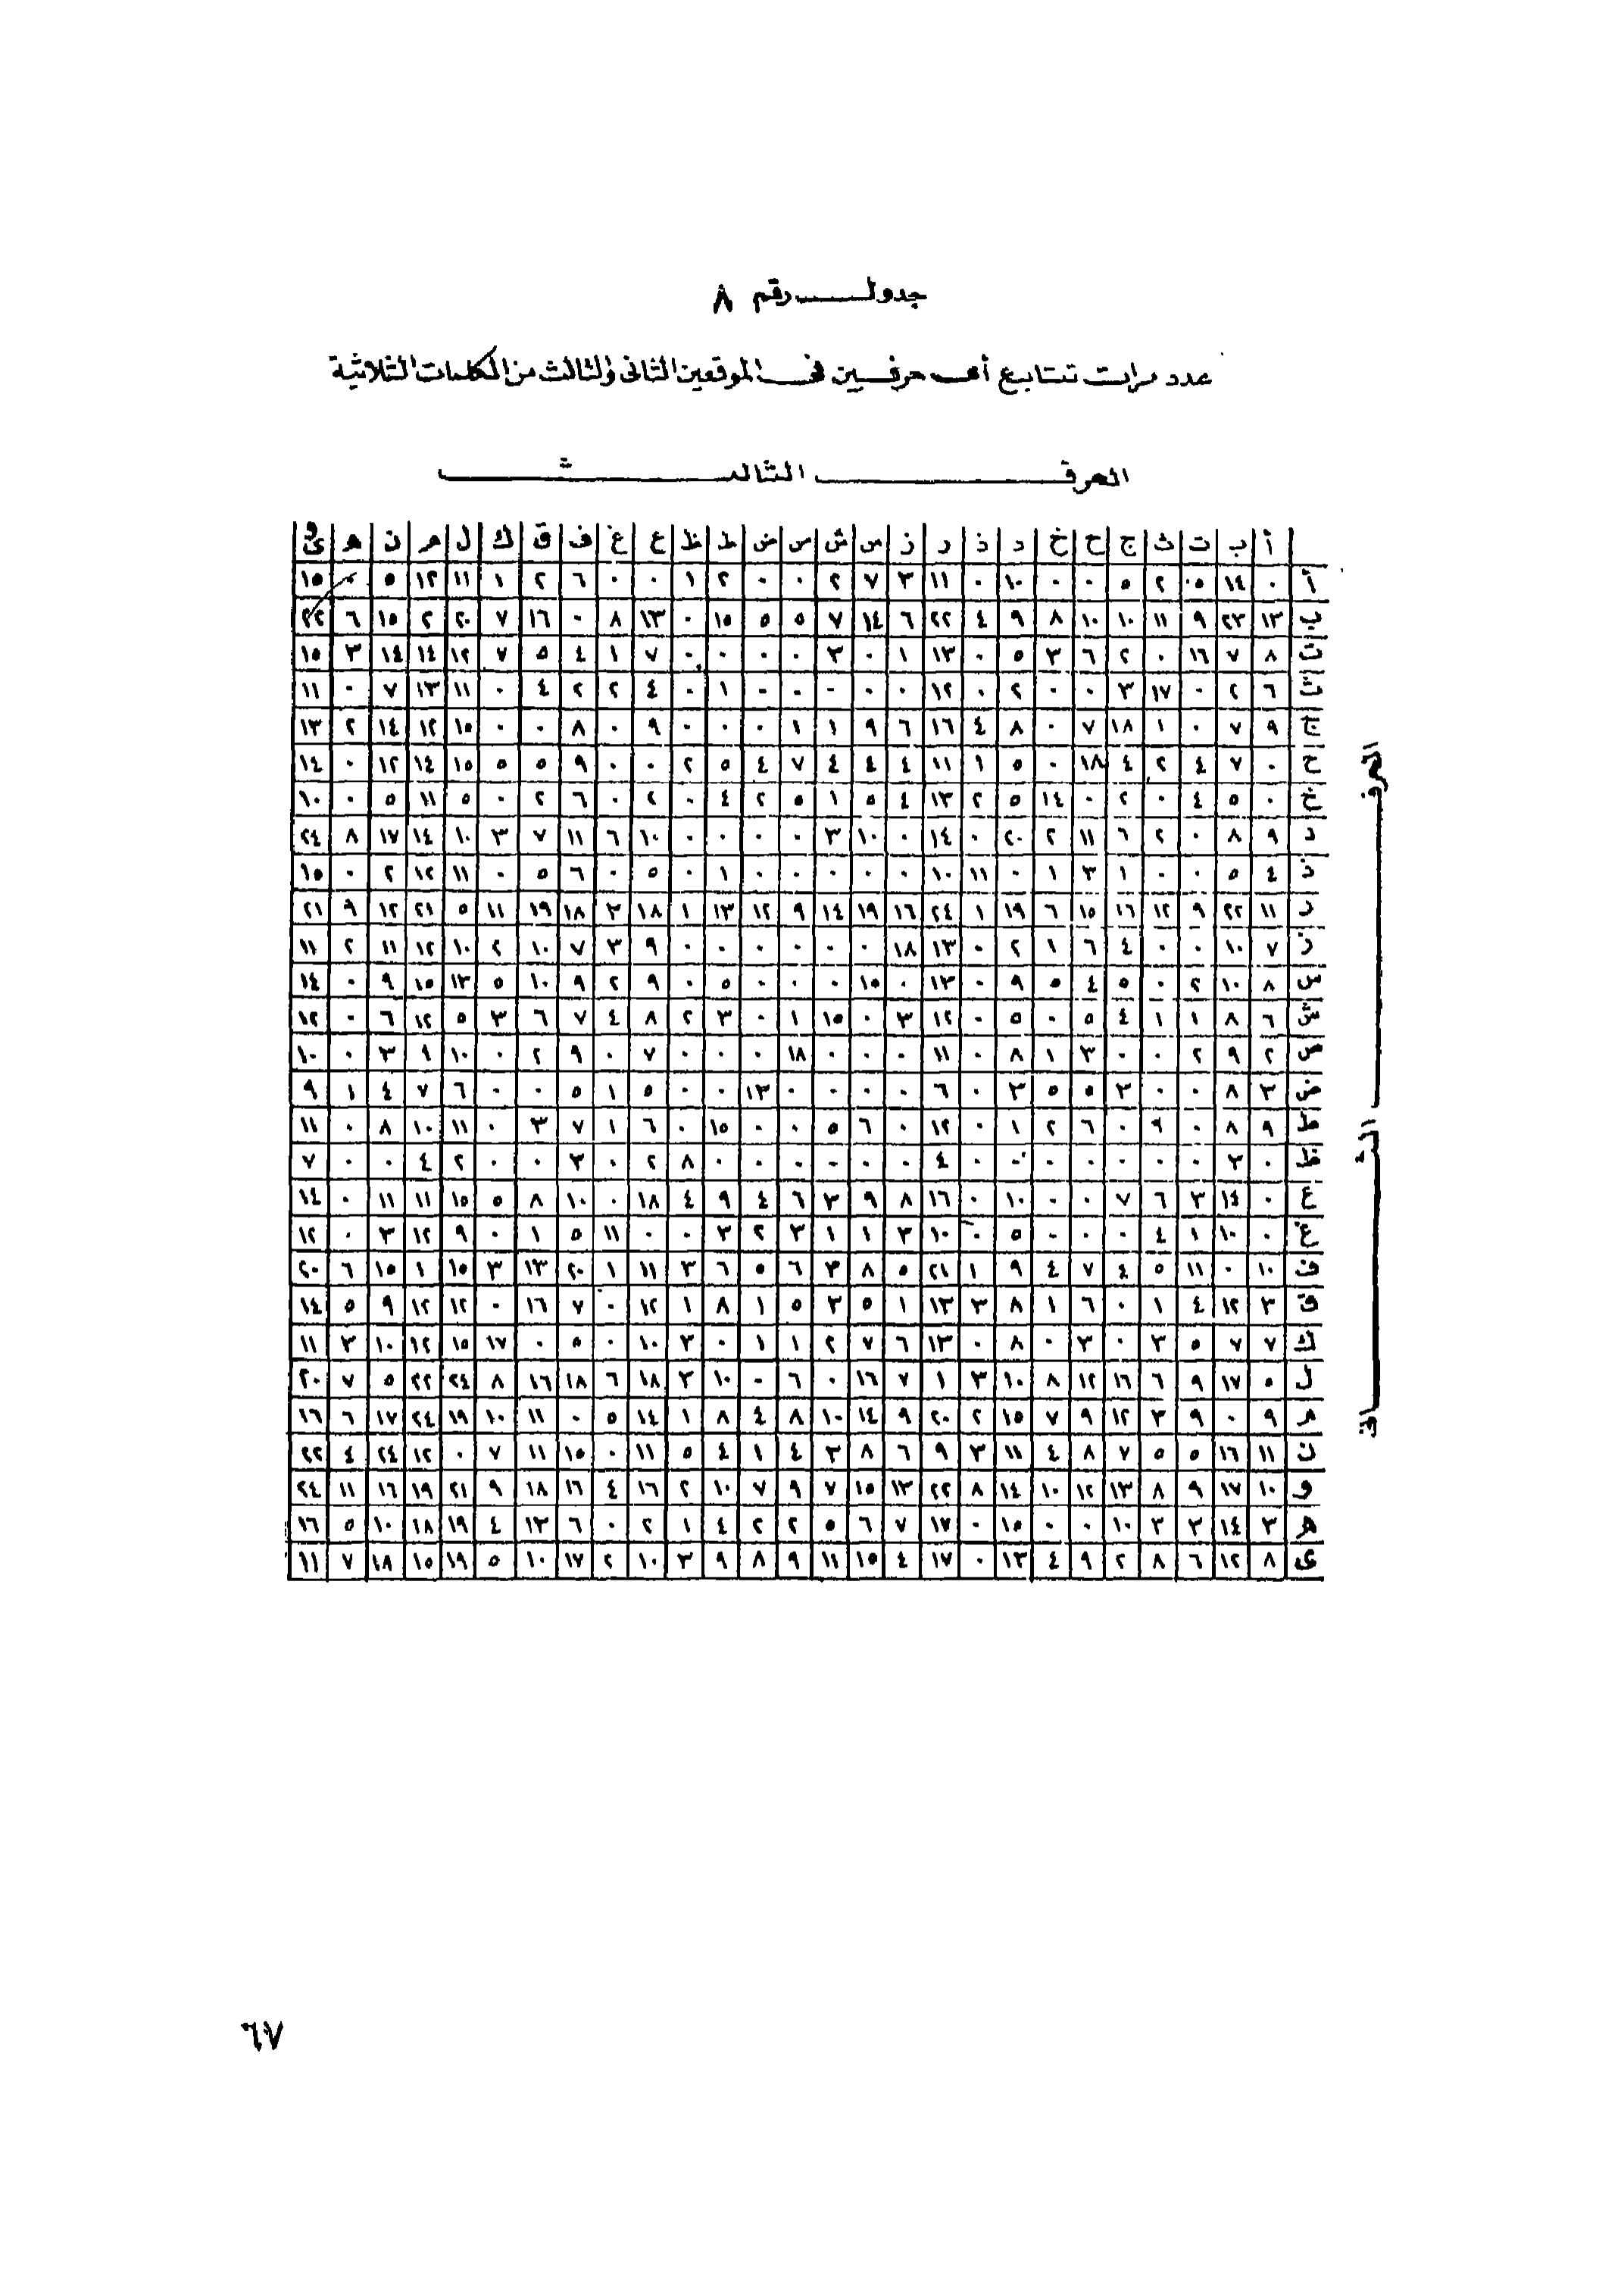 جدول رقم ٨
عدد مرات تتابع أى حرفين فى الموقعين الثانى والثالث من الكلمات الثلاثية
الحرف الثالث
أ ب ت ث ج ح خ د ذ ر ز س ش ص ض ط ظ ع غ ف ق ك ل م ن ه و ى
أ ٠ ١٤ ٥ ٢ ٥ ٠ ٠ ١٠ ٠ ١١ ٣ ٧ ٢ ٠ ٠ ٢ ١ ٠ ٠ ٦ ٢ ١ ١١ ١٢ ٥ ٠ ١٥
ب ١٣ ٢٣ ٩ ١١ ١٠ ١٠ ٨ ٩ ٤ ٢٢ ٦ ١٤ ٧ ٥ ٥ ١٥ ٠ ١٣ ٨ ٠ ١٦ ٧ ٢٠ ٢ ١٥ ٦ ٢٢
ت ٨ ٧ ١٦ ٠ ٢ ٦ ٣ ٥ ٠ ١٣ ١ ٠ ٣ ٠ ٠ ٠ ٠ ٧ ١ ٤ ٥ ٧ ١٢ ١٤ ١٤ ٣ ١٥
ث ٦ ٢ ٠ ١٧ ٣ ٠ ٠ ٢ ٠ ١٢ ٠ ٠ ٠ ٠ ٠ ١ ٠ ٤ ٢ ٢ ٤ ٠ ١١ ١٣ ٧ ٠ ١١
ج ٩ ٧ ٠ ١ ١٨ ٧ ٠ ٨ ٤ ١٦ ٦ ٩ ١ ١ ٠ ٠ ٠ ٩ ٠ ٨ ٠ ٠ ١٥ ١٢ ١٤ ٢ ١٣
ح ٠ ٧ ٤ ٢ ٤ ١٨ ٠ ٥ ١ ١١ ٤ ٤ ٤ ٧ ٤ ٥ ٢ ٠ ٠ ٩ ٥ ٥ ١٥ ١٤ ١٢ ٠ ١٤
خ ٠ ٥ ٤ ٠ ٢ ٠ ١٤ ٥ ٢ ١٣ ٤ ٥ ١ ٥ ٢ ٤ ٠ ٤ ٠ ٦ ٢ ٠ ٥ ١١ ٥ ٠ ١٠
د ٩ ٨ ٠ ٢ ٦ ١١ ٢ ٢٠ ٠ ١٤ ٠ ١٠ ٣ ٠ ٠ ٠ ٠ ١٠ ٦ ١١ ٧ ٣ ١٠ ١٤ ١٧ ٨ ٢٤
ذ ٤ ٥ ٠ ٠ ١ ٣ ١ ٠ ١١ ١٠ ٠ ٠ ٠ ٠ ٠ ١ ٠ ٥ ٠ ٦ ٥ ٠ ١١ ١٢ ٢ ٠ ١٥
ر ١١ ٢٢ ٩ ١٢ ١٦ ١٥ ٦ ١٩ ١ ٢٤ ١٦ ١٩ ١٤ ٩ ١٢ ١٣ ١ ١٨ ٣ ١٨ ١٩ ١١ ٥ ٢١ ١٢ ٩ ٢١
ز ٧ ١٠ ٠ ٠ ٤ ٦ ١ ٢ ٠ ١٣ ١٨ ٠ ٠ ٠ ٠ ٠ ٠ ٩ ٣ ٧ ١٠ ٢ ١٠ ١٢ ١١ ٢ ١١
س ٨ ١٠ ٢ ٠ ٥ ٤ ٥ ٩ ٠ ١٣ ٠ ١٥ ٠ ٠ ٠ ٥ ٠ ٩ ٢ ٩ ١٠ ٥ ١٣ ١٥ ٩ ٠ ١٤
ش ٦ ٨ ١ ١ ٤ ٥ ٠ ٥ ٠ ١٢ ٣ ٠ ١٥ ١ ٠ ٣ ٢ ٨ ٤ ٧ ٦ ٣ ٥ ١٢ ٦ ٠ ١٢
ص ٢ ٩ ٢ ٠ ٠ ٣ ١ ٨ ٠ ١١ ٠ ٠ ٠ ١٨ ٠ ٠ ٠ ٧ ٠ ٩ ٢ ٠ ١٠ ٩ ٣ ٠ ١٠
ض ٣ ٨ ٠ ٠ ٣ ٥ ٥ ٣ ٠ ٦ ٠ ٠ ٠ ٠ ١٣ ٠ ٠ ٥ ١ ٥ ٠ ٠ ٦ ٧ ٤ ١ ٩
ط ٩ ٨ ٠ ٩ ٠ ٦ ٢ ١ ٠ ١٢ ٠ ٦ ٥ ٠ ٠ ١٥ ٠ ٦ ١ ٧ ٣ ٠ ١١ ١٠ ٨ ٠ ١١
ظ ٠ ٣ ٠ ٠ ٠ ٠ ٠ ٠ ٠ ٤ ٠ ٠ ٠ ٠ ٠ ٠ ٨ ٢ ٠ ٣ ٠ ٠ ٢ ٤ ٠ ٠ ٧
ع ٠ ١٤ ٣ ٦ ٧ ٠ ٠ ١٠ ٠ ١٦ ٨ ٩ ٣ ٦ ٤ ٩ ٤ ١٨ ٠ ١٠ ٨ ٥ ١٥ ١١ ١١ ٠ ١٤
غ ٠ ١٠ ١ ٤ ٠ ٠ ٠ ٥ ٠ ١٠ ٣ ١ ١ ٣ ٢ ٣ ٠ ٠ ١١ ٥ ١ ٠ ٩ ١٢ ٣ ٠ ١٢
ف ١٠ ٠ ١١ ٥ ٤ ٧ ٤ ٩ ١ ٢١ ٥ ٨ ٣ ٦ ٥ ٦ ٣ ١١ ١ ٢٠ ١٣ ٣ ١٥ ١ ١٥ ٦ ٢٠
ق ٣ ١٢ ٤ ١ ٠ ٦ ١ ٨ ٣ ١٣ ١ ٥ ٣ ٥ ١ ٨ ١ ١٢ ٠ ٧ ١٦ ٠ ١٢ ١٢ ٩ ٥ ١٤
ك ٧ ٧ ٥ ٣ ٠ ٣ ٠ ٨ ٠ ١٣ ٦ ٧ ٢ ١ ١ ٠ ٣ ١٠ ٠ ٥ ٠ ١٧ ١٥ ١٢ ١٠ ٣ ١١
ل ٥ ١٧ ٩ ٦ ١٦ ١٢ ٨ ١٠ ٣ ١ ٧ ١٦ ٠ ٦ ٠ ١٠ ٣ ١٨ ٦ ١٨ ١٦ ٨ ٢٤ ٢٢ ٥ ٧ ٢٠
م ٩ ٠ ٩ ٣ ١٢ ٩ ٧ ١٥ ٢ ٢٠ ٩ ١٤ ١٠ ٨ ٤ ٨ ١ ١٤ ٥ ٠ ١١ ١٠ ١٩ ٢٤ ١٧ ٦ ١٦
ن ١١ ١٦ ٥ ٥ ٧ ٨ ٤ ١١ ٣ ٩ ٦ ٨ ٣ ٤ ١ ٤ ٥ ١١ ٠ ١٥ ١١ ٧ ٠ ١٢ ٢٤ ٤ ٢٢
و ١٠ ١٧ ٩ ٨ ١٣ ١٢ ١٠ ١٤ ٨ ٢٢ ١٣ ١٥ ٧ ٩ ٧ ١٠ ٢ ١٦ ٤ ١٦ ١٨ ٩ ٢١ ١٩ ١٦ ١١ ٢٤
ه ٣ ١٤ ٣ ٣ ١٠ ٠ ٠ ١٥ ٠ ١٧ ٧ ٦ ٥ ٢ ٢ ٤ ١ ٢ ٠ ٦ ١٣ ٤ ١٩ ١٨ ١٠ ٥ ١٦
ى ٨ ١٢ ٦ ٨ ٢ ٩ ٤ ١٣ ٠ ١٧ ٤ ١٥ ١١ ٩ ٨ ٩ ٣ ١٠ ٢ ١٧ ١٠ ٥ ١٩ ١٥ ١٨ ٧ ١١
الحرف الثانى
٦٧